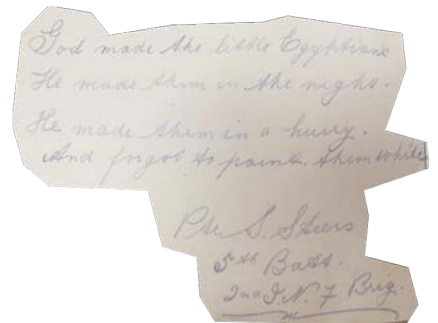 God made the little Egyptians
He made them in the night.
He made them in a hurry.
And frigot to paint them white
Pte S. Steers
5th Batt.
2nd I.N.F Brig.